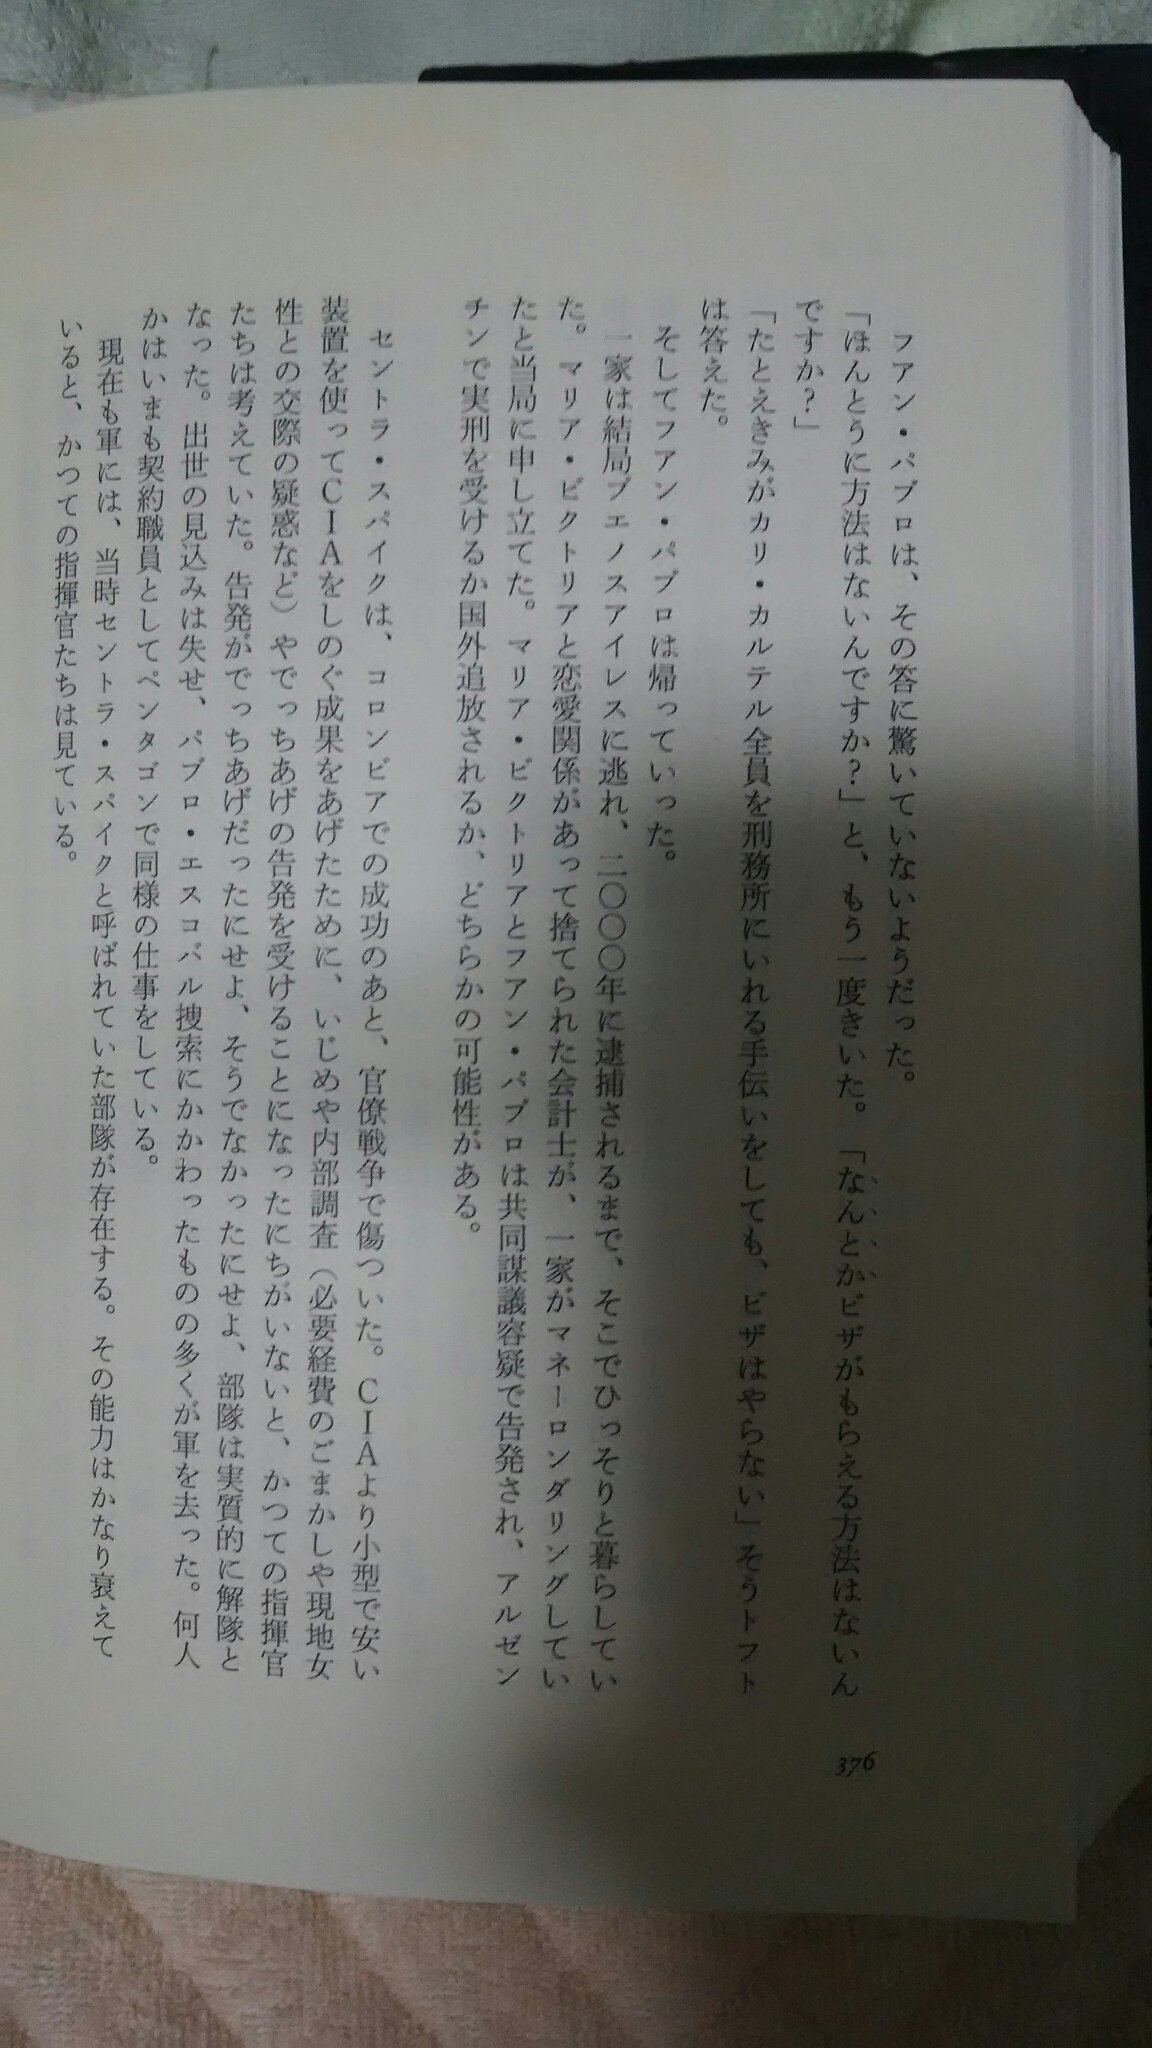 フアン・パブロは、その答に驚いていないようだった。
「ほんとうに方法はないんですか？」と、もう一度きいた。「なんとかビザがもらえる方法はないん
ですか？」
「たとえきみがカリ・カルテル全員を刑務所にいれる手伝いをしても、ビザはやらない」そうトフト
は答えた。
そしてフアン・パブロは帰っていった。
一家は結局ブエノスアイレスに逃れ、二〇〇〇年に逮捕されるまで、そこでひっそりと暮らしてい
た。マリア・ビクトリアと恋愛関係があって捨てられた会計士が、一家がマネーロンダリングしてい
たと当局に申し立てた。マリア・ビクトリアとフアン・パブロは共同謀議容疑で告発され、アルゼン
チンで実刑を受けるか国外追放されるか、どちらかの可能性がある。
セントラ・スパイクは、コロンビアでの成功のあと、官僚戦争で傷ついた。ＣＩＡより小型で安い
装置を使ってＣＩＡをしのぐ成果をあげたために、いじめや内部調査（必要経費のごまかしや現地女
性との交際の疑惑など）やでっちあげの告発を受けることになったにちがいないと、かつての指揮官
たちは考えていた。告発がでっちあげだったにせよ、そうでなかったにせよ、部隊は実質的に解隊と
なった。出世の見込みは失せ、パブロ・エスコバル捜索にかかわったものの多くが軍を去った。何人
かはいまも契約職員としてペンタゴンで同様の仕事をしている。
現在も軍には、当時セントラ・スパイクと呼ばれていた部隊が存在する。その能力はかなり衰えて
いると、かつての指揮官たちは見ている。
376